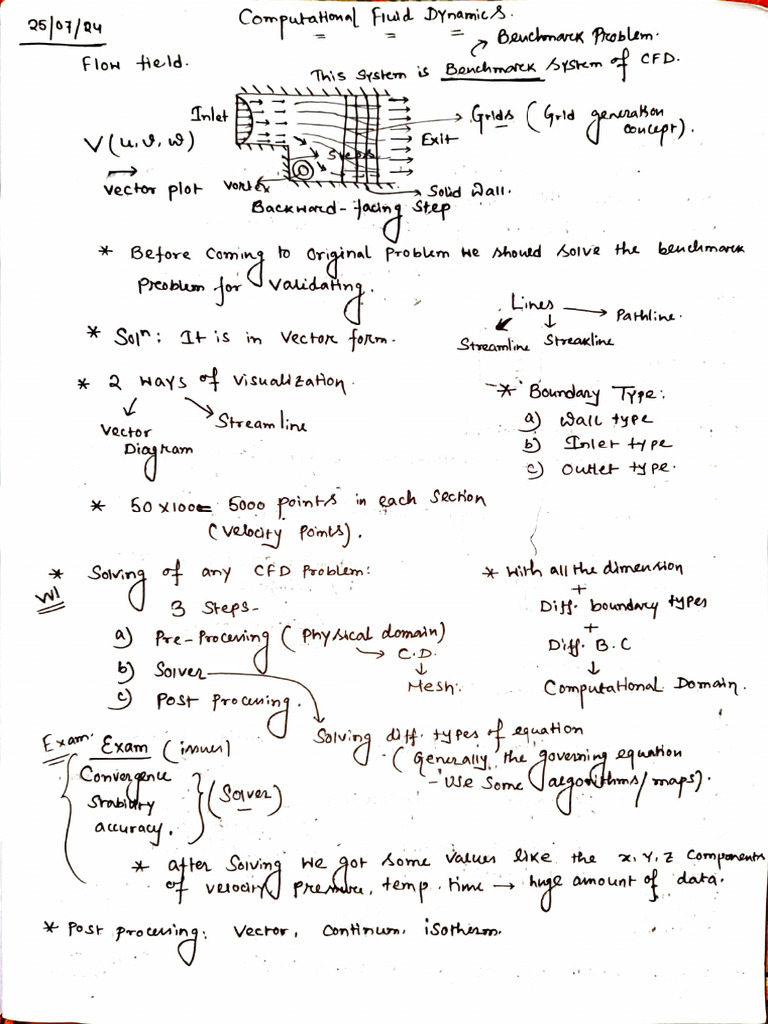 25/07/24
Computational Fluid Dynamics.
Benchmark Problem.
Flow field.
This System is Benchmark System of CFD.
Inlet
Grids (Grid generation concept).
V(u,v,w)
Exit
Steps
vector plot
vortex
Solid Wall.
Backward-facing Step
* Before Coming to Original Problem we should solve the benchmark
Problem for validating.
Lines → Pathline.
Streamline Streakline
* Solⁿ: It is in vector form.
* 2 ways of visualization.
Vector Diagram
Streamline
* Boundary Type:
a) Wall type
b) Inlet type
c) Outlet type.
* 50x100= 5000 points in each section
(velocity points).
* Solving of any CFD Problem:
3 Steps-
a) Pre-Processing (Physical domain)
→ C.D.
↓
Mesh.
b) Solver
c) Post Processing.
* With all the dimension
+
Diff. boundary types
+
Diff. B.C
↓
Computational Domain.
Solving diff. types of equation
(Generally, the governing equation
- Use Some algorithms/maps).
Exam. Exam (issues)
Convergence
Stability
accuracy.
(Solver)
* after Solving we got some values like the x,Y,Z Components
of velocity pressure, temp. time → huge amount of data.
* Post processing: Vector, Continum, isotherm.